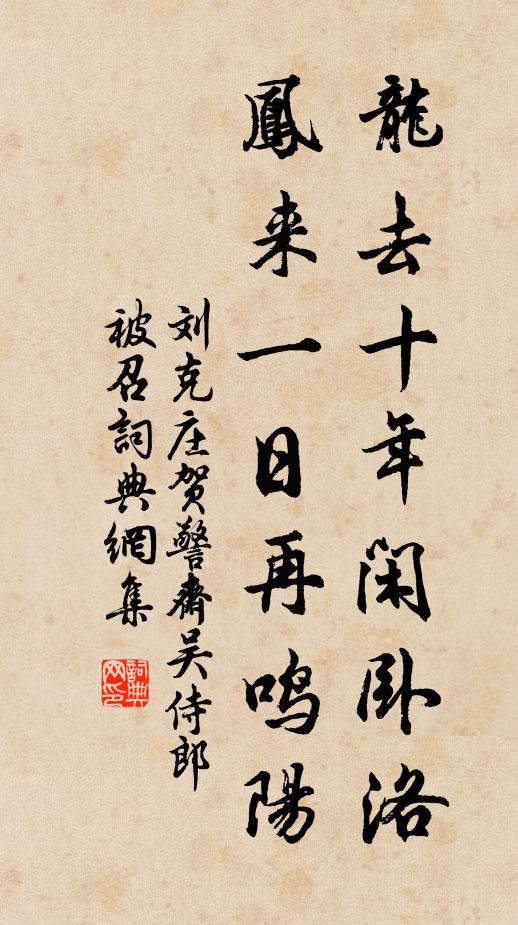 龍去十年閑卧洛
鳳来一日再鸣陽
刘克庄贺警齋吴侍郎
被召詞典網集
詞典网印